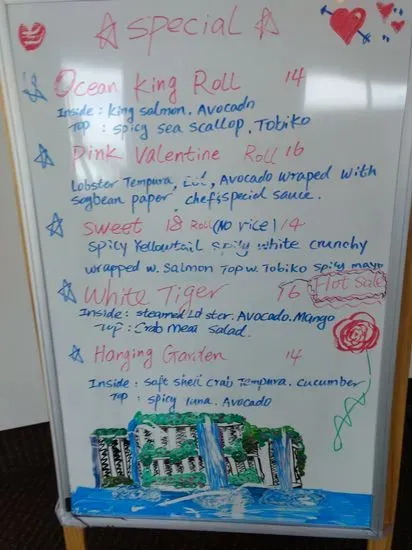 Special
Ocean King Roll 14
Inside : King salmon. Avocado
Top : spicy sea scallop, Tobiko
Pink Valentine Roll 16
Lobster Tempura, Eel, Avocado wraped with
soybean paper, chef's special sauce.
Sweet 18 Roll (No rice) 14
spicy Yellowtail spicy white crunchy
wrapped w. Salmon Top w. Tobiko spicy mayo
White Tiger 16 Hot Sale
Inside : steamed Lobster. Avocado. Mango
Top : Crab meat salad.
Hanging Garden 14
Inside : Soft shell crab Tempura. cucumber
Top : spicy tuna. Avocado